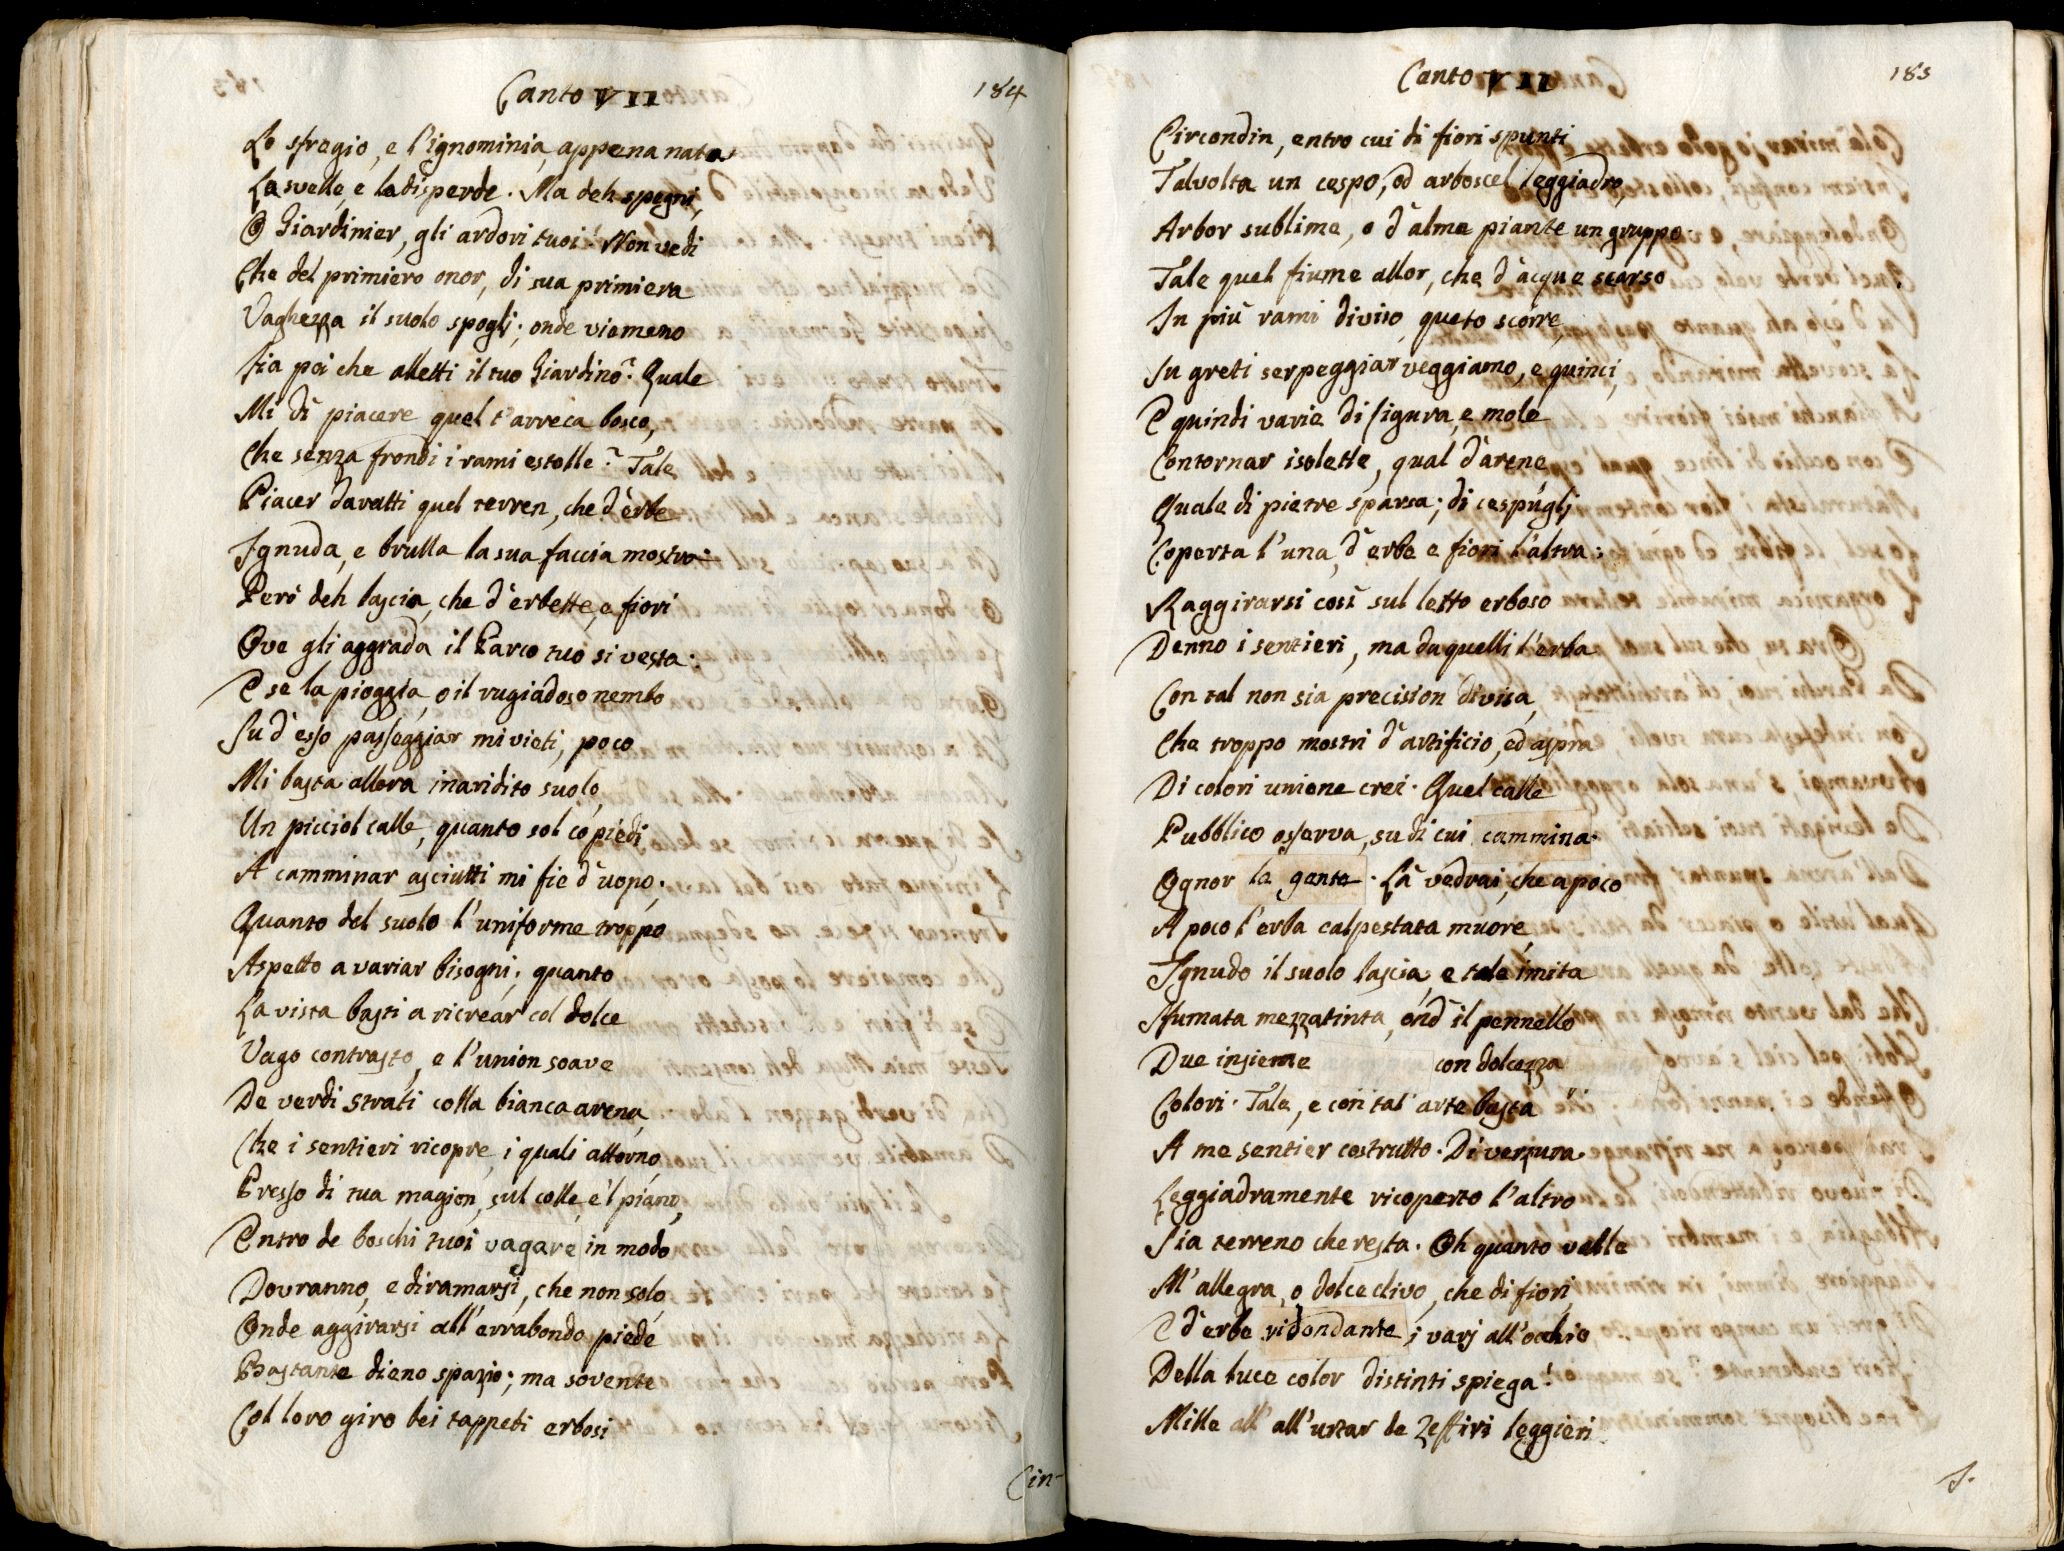 Canto VII
184
Lo sfregio, e l'ignominia, appena nata
La svelle, e la disperde. Ma deh spegni,
O Giardinier, gli ardori tuoi! Non vedi
Che del primiero onor, di sua primiera
Vaghezza il suolo spoglj; onde viameno
Fia poi che alletti il tuo Giardino? Quale
Mi dì piacere quel t'arreca bosco,
Che senza frondi i rami estolle? Tale
Piacer daratti quel terren, che d'erbe
Ignuda, e brulla la sua faccia mostra.
Però deh lascia, che d'erbette, e fiori
Ove gli aggrada il Parco tuo si vesta:
E se la pioggia, o il rugiadoso nembo
Su d'esso passeggiar mi vieti, poco
Mi basta allora inaridito suolo,
Un picciol calle, quanto sol co' piedi
A camminar asciutti mi fie d'uopo;
Quanto del suolo l'uniforme troppo
Aspetto a variar bisogni; quanto
La vista basti a ricrear col dolce
Vago contrasto, e l'union soave
De verdi strati colla bianca arena,
Che i sentieri ricopre, i quali attorno
Presso di tua magion, sul colle, e'l piano,
Entro de boschi tuoi vagare in modo
Dovranno, e diramarsi, che non solo
Onde aggirarsi all'errabondo piede
Bastante dieno spazio; ma sovente
Col loro giro bei tappeti erbosi
Cin-
Canto VII
185
Circondin, entro cui di fiori spunti
Talvolta un cespo, od arboscel leggiadro,
Arbor sublime, o d'alme piante un gruppo.
Tale quel fiume allor, che d'acque scarso
In più rami diviso, queto scorre,
Su greti serpeggiar veggiamo, e quinci,
E quindi varie di figura, e mole
Contornar isolette, qual d'arene
Quale di pietre sparsa; di cespuglj
Coperta l'una, d'erbe e fiori l'altra:
Raggirarsi così sul letto erboso
Denno i sentieri, ma da quelli l'erba
Con tal non sia precision divisa,
Che troppo mostri d'artificio, ed aspra
Di colori unione crei. Quel calle
Pubblico osserva, su di cui cammina
Ognor la gente. Là vedrai, che a poco
A poco l'erba calpestata muore,
Ignudo il suolo lascia, e tale imita
Sfumata mezzatinta, ond' il pennello
Due insieme con dolcezza
Colori. Tale, e con tal arte basta
A me sentier costrutto. Di verzura
Leggiadramente ricoperto l'altro
Sia terreno che resta. Oh quanto valle
M'allegra, o dolce clivo, che di fiori,
E d'erbe ridondante, i varj all'occhio
Della luce color distinti spiega!
Mille all' all'urtar de Zeffiri leggieri
S.